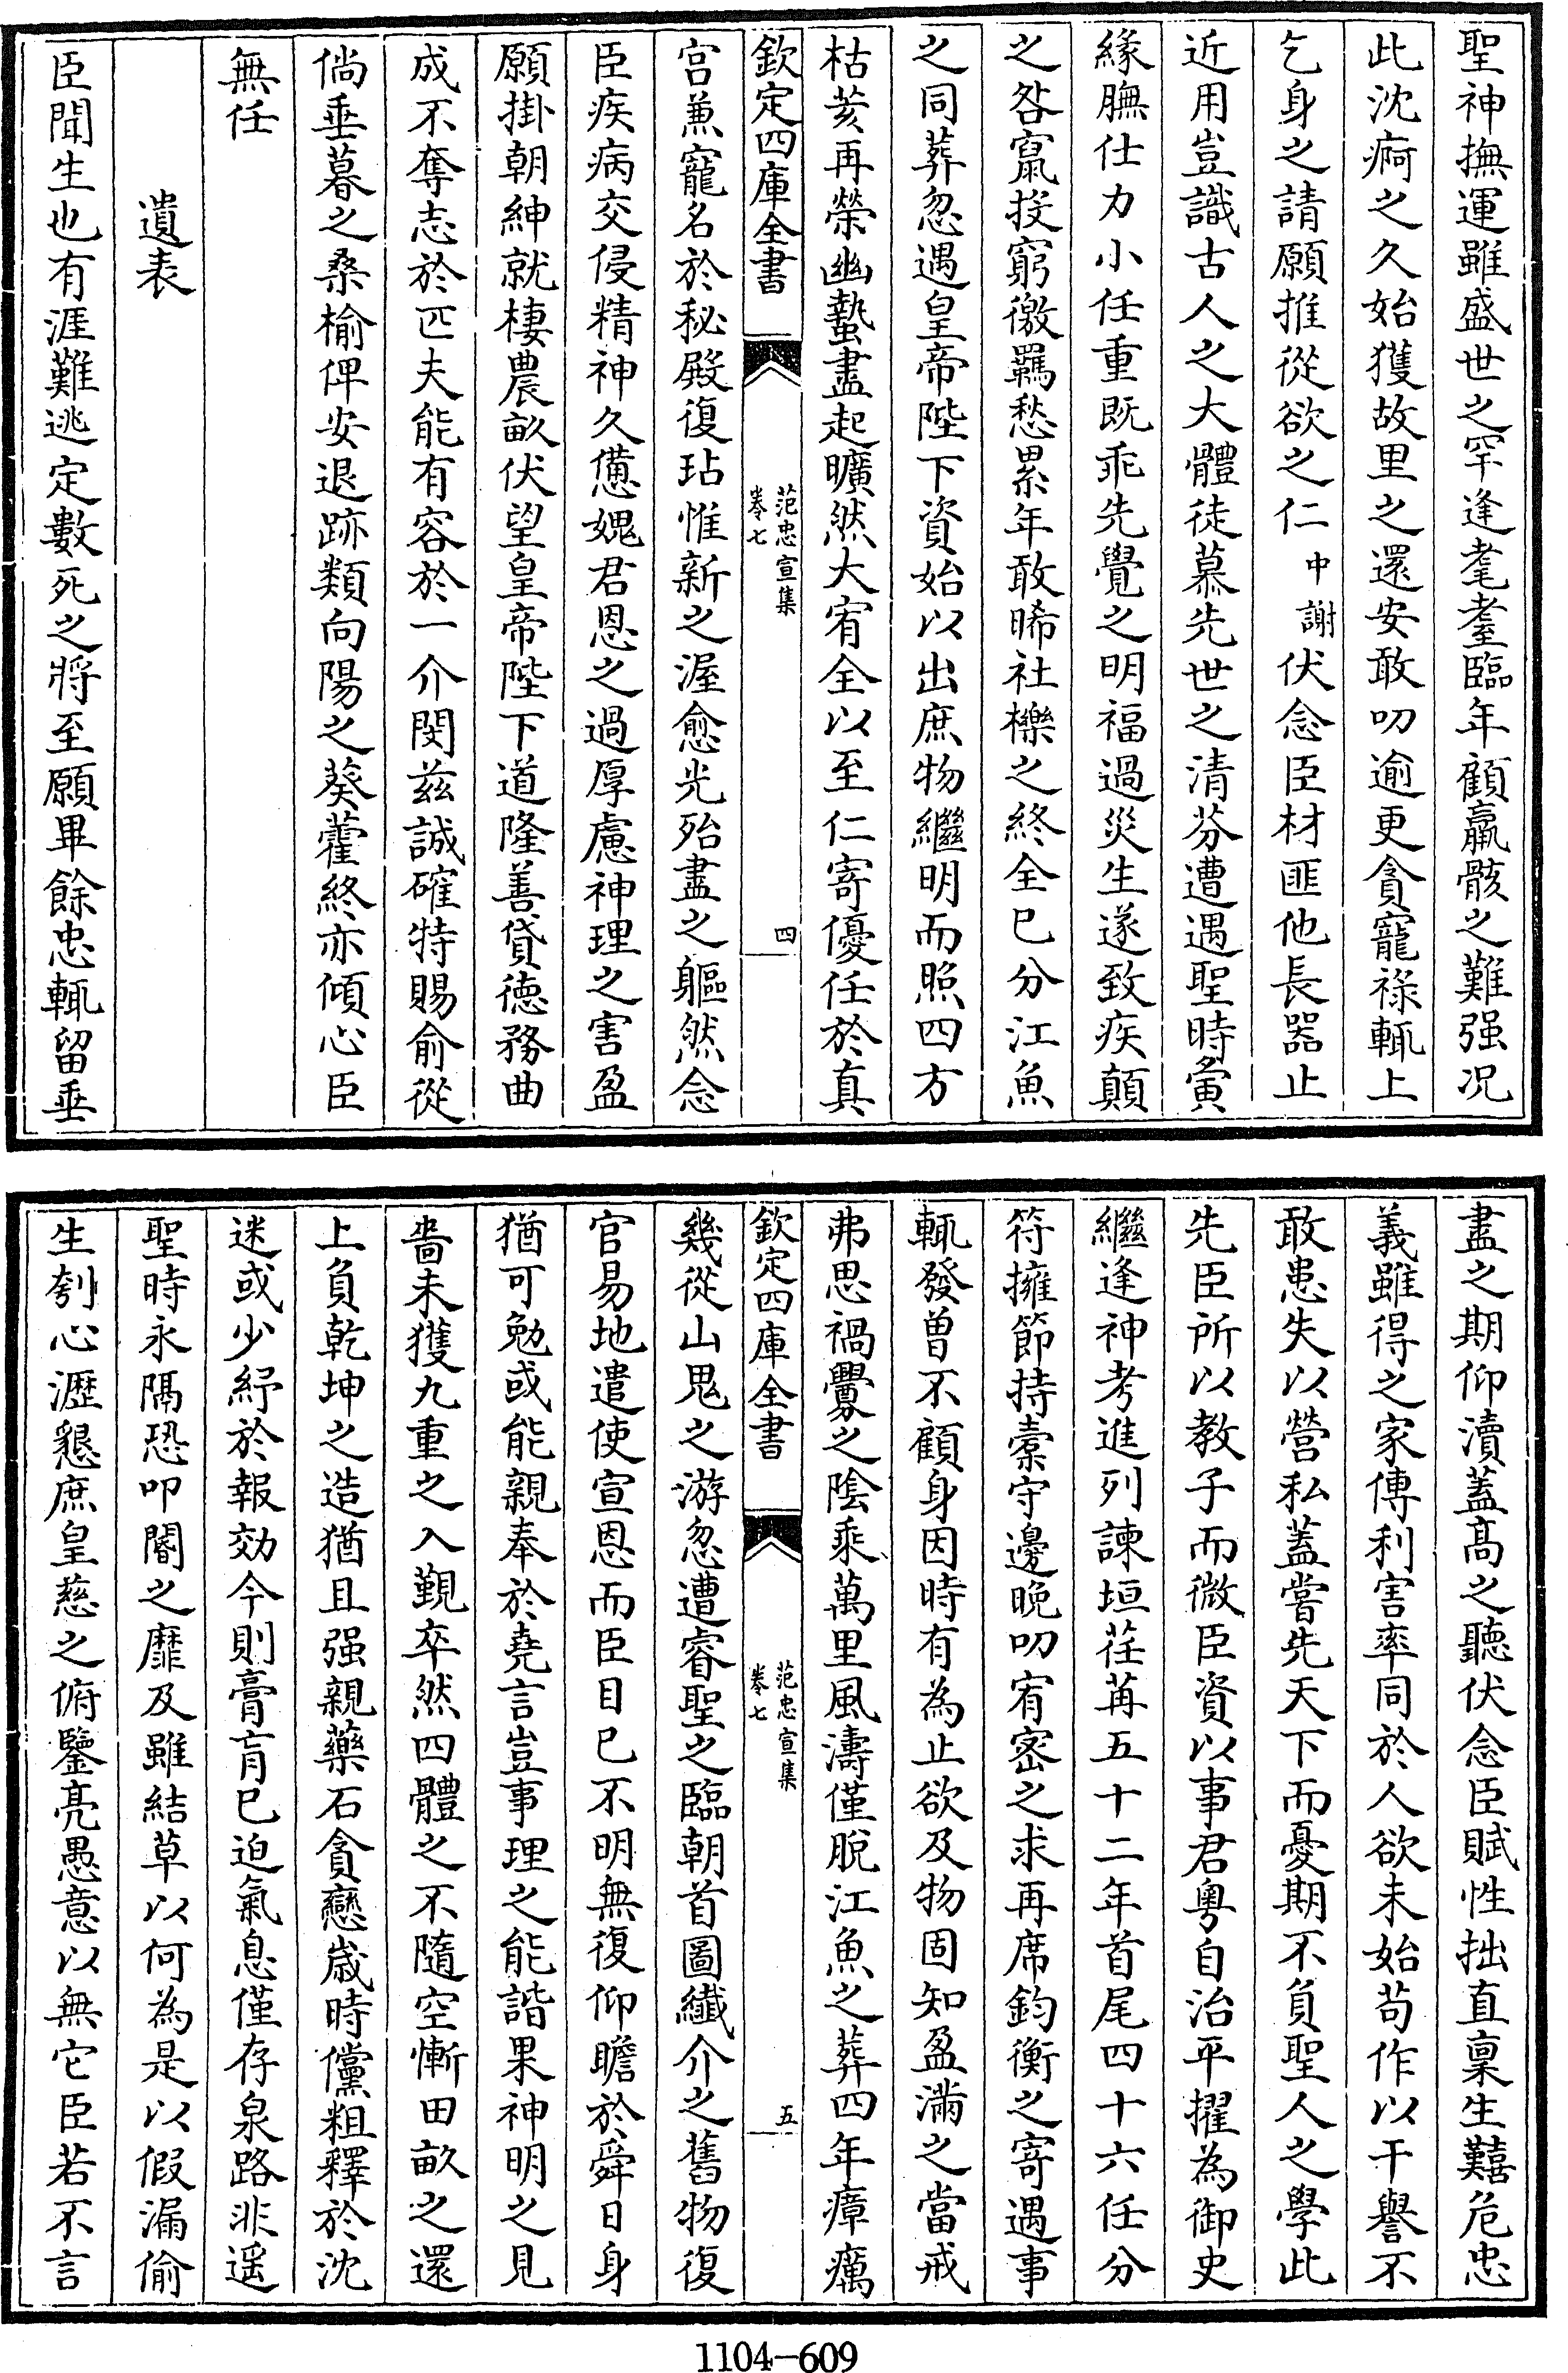 聖神撫運雖盛世之罕逢耄耋臨年顧羸骸之難强况
此沈痾之久始獲故里之還安敢叨逾更貪寵祿輒上
乞身之請願推從欲之仁中謝伏念臣材匪他長器止
近用豈識古人之大體徒慕先世之清芬遭遇聖時夤
緣膴仕力小任重既乖先覺之明福過災生遂致疾顛
之咎竄投窮徼羈愁累年敢晞社櫟之終全已分江魚
之同葬忽遇皇帝陛下資始以出庶物繼明而照四方
枯荄再榮幽蟄盡起曠然大宥全以至仁寄優任於真
欽定四庫全書
范忠宣集
卷七
四
宫兼寵名於秘殿復玷惟新之渥愈光殆盡之軀然念
臣疾病交侵精神久憊媿君恩之過厚慮神理之害盈
願掛朝紳就棲農畝伏望皇帝陛下道隆善貸德務曲
成不奪志於匹夫能有容於一介閔兹誠確特賜俞從
倘垂暮之桑榆俾安退跡類向陽之葵藿終亦傾心臣
無任
遺表
臣聞生也有涯難逃定數死之將至願畢餘忠輒留垂
盡之期仰瀆蓋髙之聽伏念臣賦性拙直稟生囏危忠
義雖得之家傳利害率同於人欲未始苟作以干譽不
敢患失以營私蓋嘗先天下而憂期不負聖人之學此
先臣所以教子而微臣資以事君粤自治平擢為御史
繼逢神考進列諫垣荏苒五十二年首尾四十六任分
符擁節持槖守邊晚叨宥密之求再席鈞衡之寄遇事
輒發曾不顧身因時有為止欲及物固知盈滿之當戒
弗思禍釁之陰乘萬里風濤僅脫江魚之葬四年瘴癘
欽定四庫全書
范忠宣集
卷七
五
幾從山鬼之游忽遭睿聖之臨朝首圖纎介之舊物復
官易地遣使宣恩而臣目已不明無復仰瞻於舜日身
猶可勉或能親奉於堯言豈事理之能諧果神明之見
嗇未獲九重之入覲卒然四體之不隨空慚田畝之還
上負乾坤之造猶且强親藥石貪戀歲時儻粗釋於沈
迷或少紓於報効今則膏肓已迫氣息僅存泉路非遥
聖時永隔恐叩閽之靡及雖結草以何為是以假漏偷
生刳心瀝懇庶皇慈之俯鑒亮愚意以無它臣若不言
1104-609